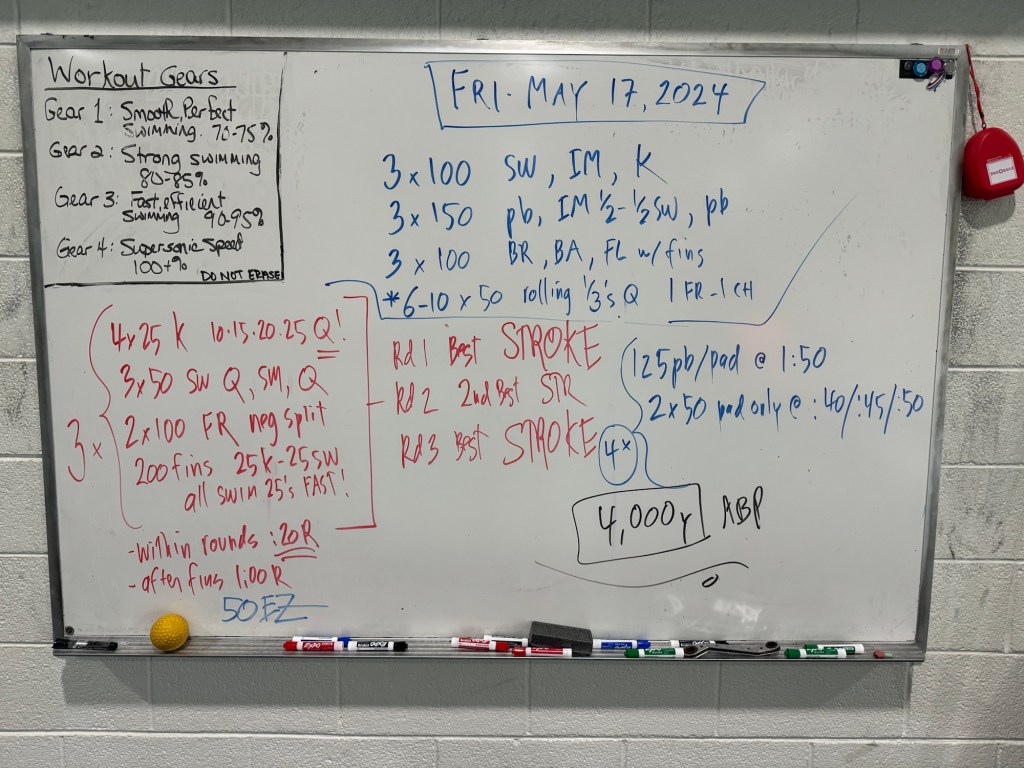 Workout Gears
Gear 1: Smooth, Perfect
Swimming. 70-75%
Gear 2: Strong swimming
80-85%
Gear 3: Fast, efficient
Swimming 90-95%
Gear 4: Supersonic Speed
100+%
DO NOT ERASE
FRI. MAY 17, 2024
3 x 100 SW, IM, K
3 x 150 pb, IM 1/2-1/2 SW, pb
3 x 100 BR, BA, FL w/ fins
*6-10 x 50 rolling 1/3's Q 1 FR-1 CH
3 x
4x25 K 10.15.20.25 Q!
3x50 SW Q, SM, Q
2x100 FR neg split
200 fins 25K-25SW
all swim 25's FAST!
-within rounds :20R
-after fins 1:00R
50 EZ
Rd 1 Best STROKE
Rd 2 2nd Best STR
Rd 3 Best STROKE
4x
125 pb/pad @ 1:50
2 x 50 pad only @ :40/:45/:50
4,000y ABP
EXPO